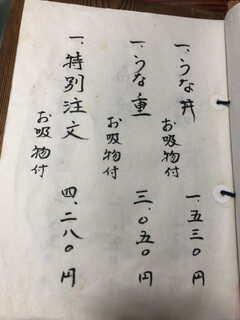 一、うな丼
お吸物付
一、五三〇円
一、うな重
お吸物付
三、〇五〇円
一、特別注文
お吸物付
四、二八〇円